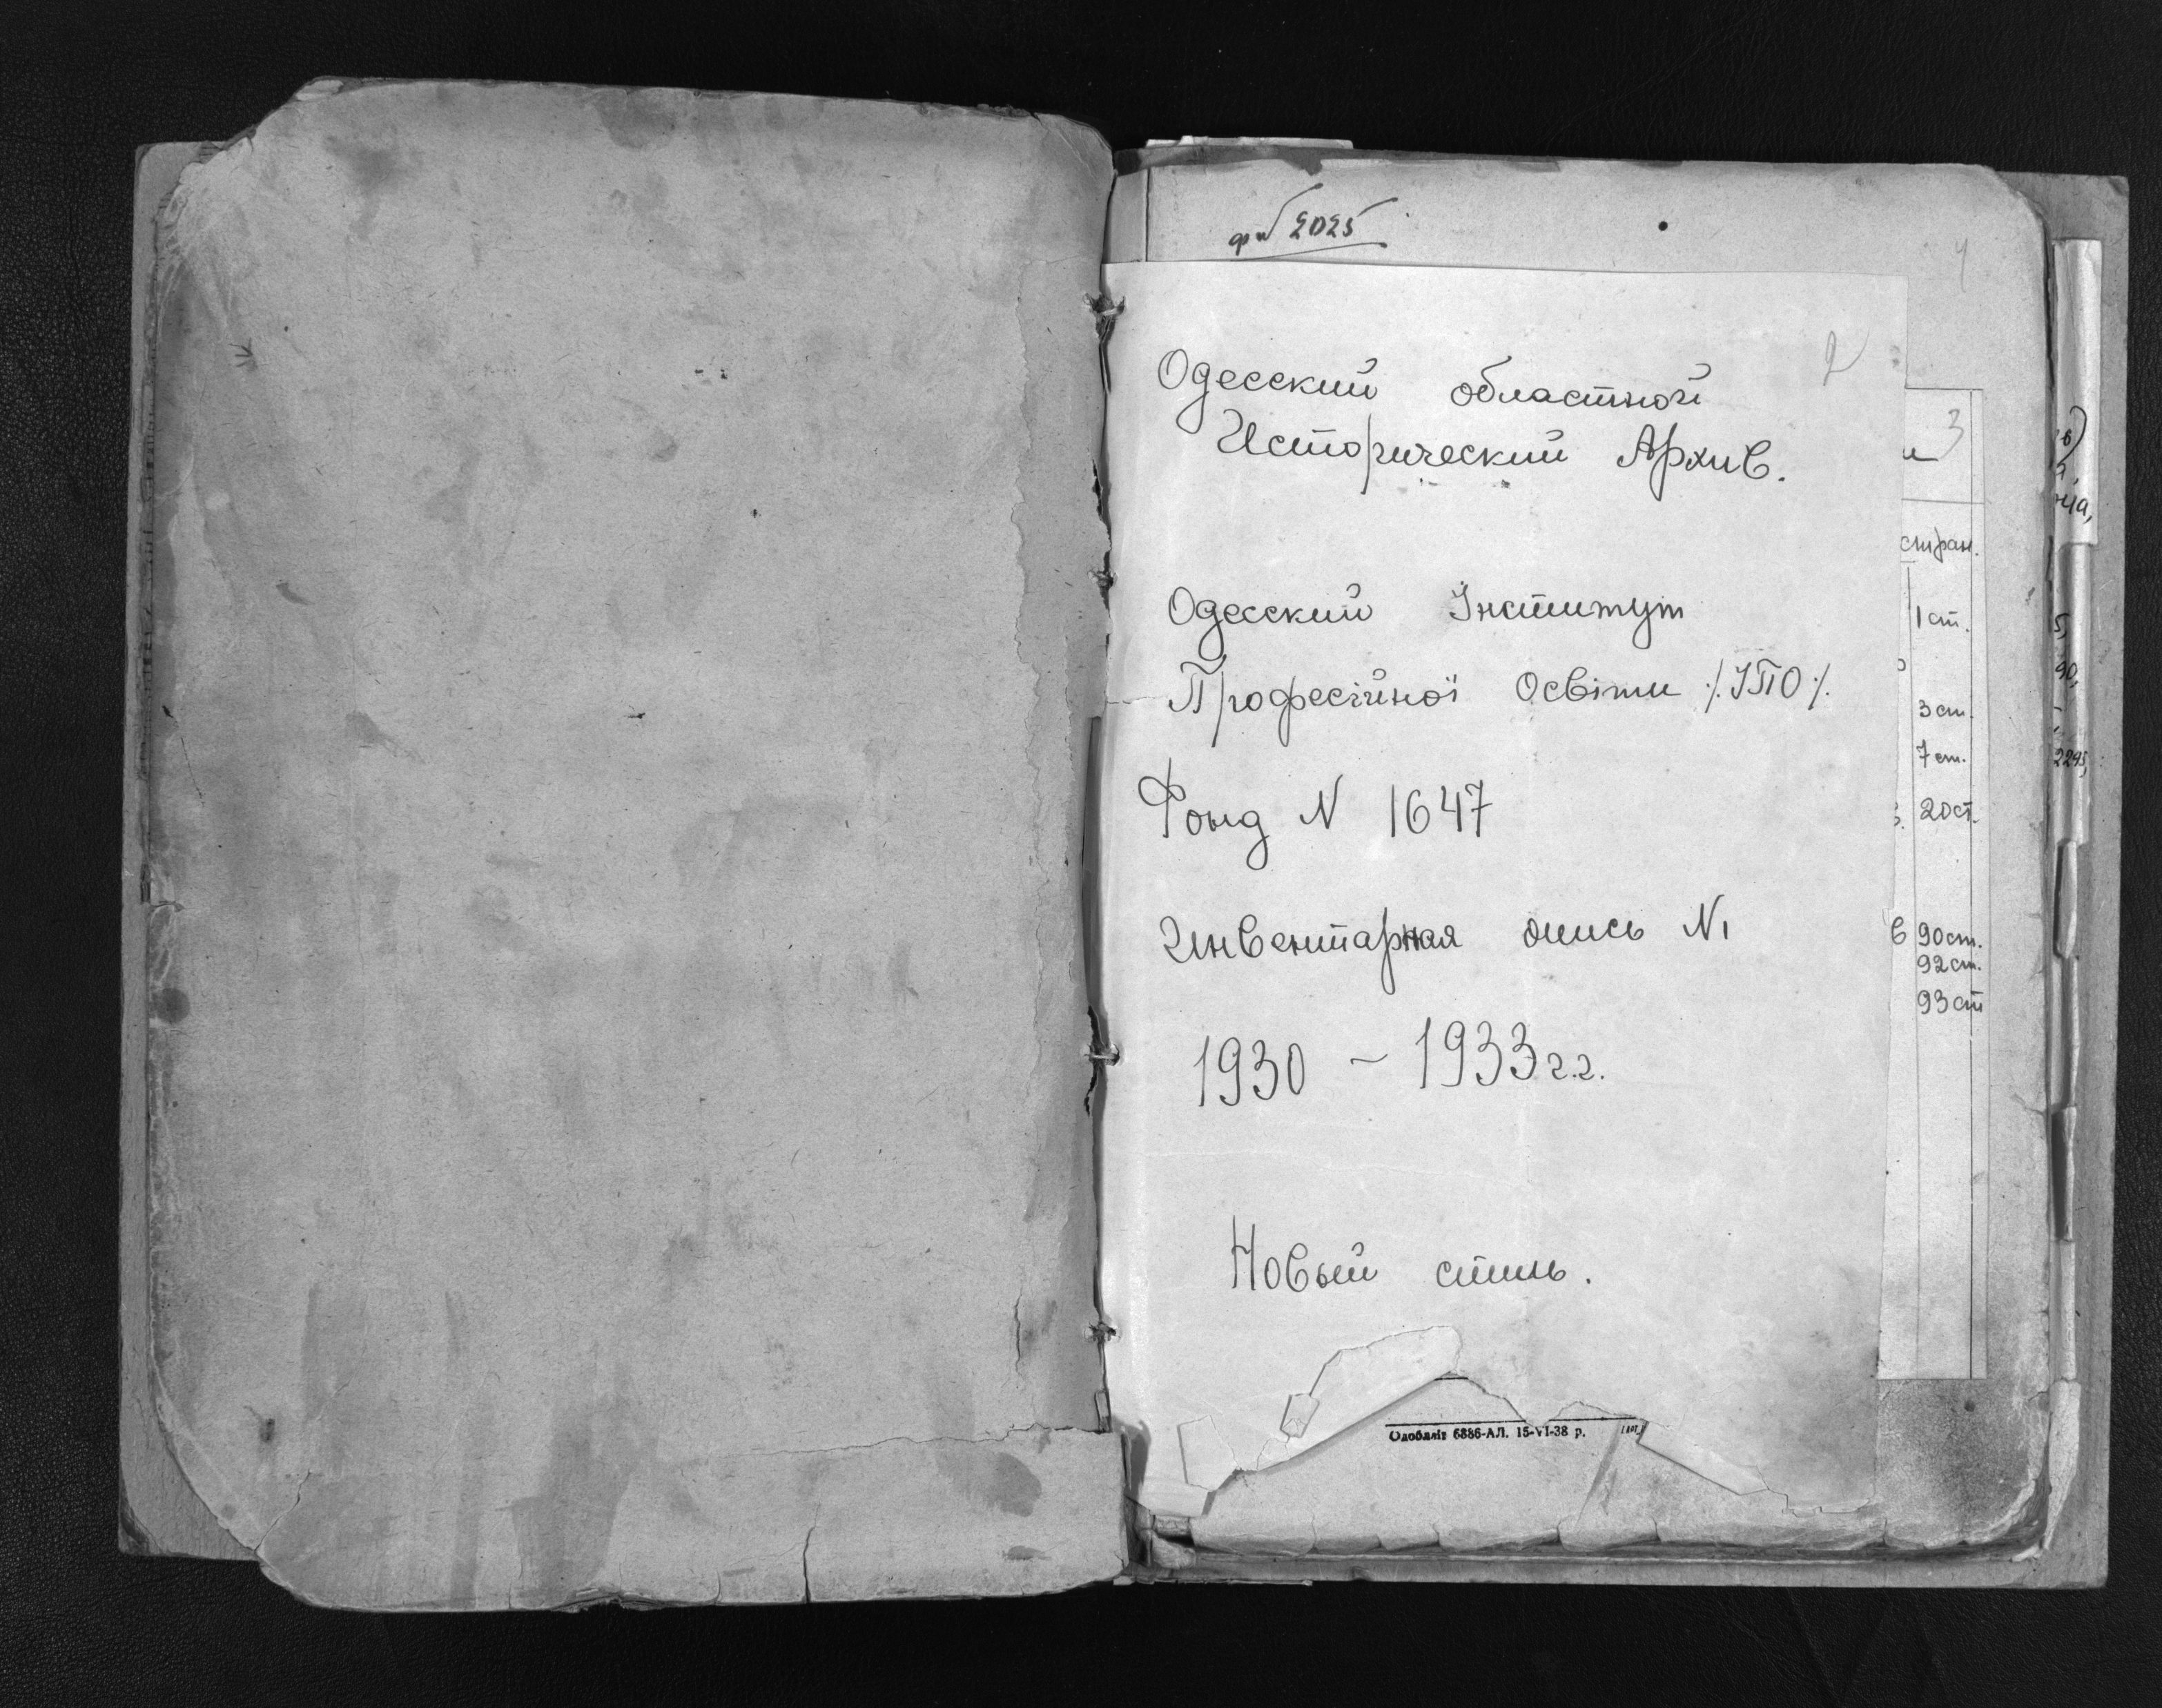 2025
4
2
Одесский областной
Исторический Архив.
3
стран.
Одесский Інститут
1 ст.
Професійної Освіти ·/. ІПО ·/.
3 ст.
7 ст.
Фонд N 1647
20 ст.
Инвентарная опись N1
90 ст.
92 ст.
93 ст
1930 – 1933 г.г.
Новый стиль.
Одоблліт 6886-АЛ. 15-VI-38 р.